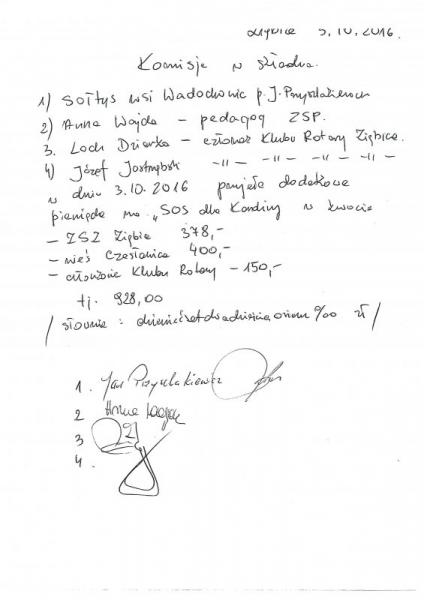 Ziębice 3.10.2016.
Komisja w składzie.
1) Sołtys wsi Wadochowic p. J. Przysztakiewicz
2) Anna Wajda – pedagog ZSP.
3. Lech – członek Klubu Rotary Ziębice.
4) Józef Jastrzębski –"– –"– –"– –"–
w dniu 3.10.2016 przyjęła dodatkowe
pieniądze na „SOS dla w kwocie
– ZSZ Ziębice 378,–
– wieś Czesławice 400,–
– członkowie Klubu Rotary – 150,–
tj. 928,00
/ słownie : dziewięćset dwadzieścia osiem %00 zł /
1. Jan
2 Anna Wajda
3
4.